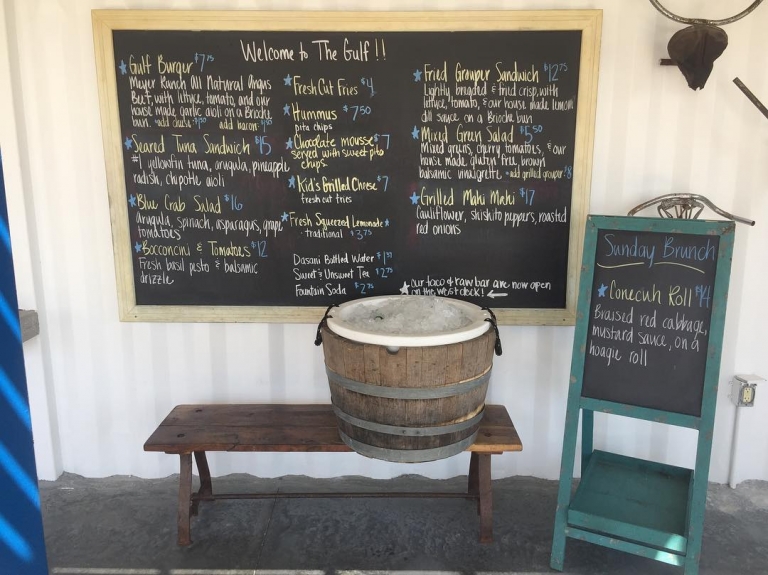 Welcome to The Gulf!!
Gulf Burger $7.75
Meyer Ranch All Natural Angus
Beef, with lettuce, tomato, and our
house made garlic aioli on a Brioche
bun. add cheese add bacon
Seared Tuna Sandwich $15
#1 yellowfin tuna, arugula, pineapple
radish, chipotle aioli
Blue Crab Salad $16
arugula, spinach, asparagus, grape
tomatoes
Bocconcini & Tomatoes $12
Fresh basil pesto & balsamic
drizzle
Fresh Cut Fries $4
Hummus $7.50
pita chips
Chocolate mousse $7
served with sweet pita
chips
Kid's Grilled Cheese $7
fresh cut fries
Fresh Squeezed Lemonade
traditional $3.75
Dasani Bottled Water
Sweet & Unsweet Tea $2.75
Fountain Soda $2.75
Fried Grouper Sandwich $12.75
Lightly breaded & fried crisp, with
lettuce, tomato, & our house made lemon
dill sauce on a Brioche bun
Mixed Green Salad $5.50
Mixed greens, cherry tomatoes, & our
house made gluten free, brown
balsamic vinaigrette - add grilled grouper $8
Grilled Mahi Mahi $17
Cauliflower, shishito peppers, roasted
red onions
our taco & raw bar are now open
on the west deck!
Sunday Brunch
Conecuh Roll $14
Braised red cabbage,
mustard sauce, on a
hoagie roll